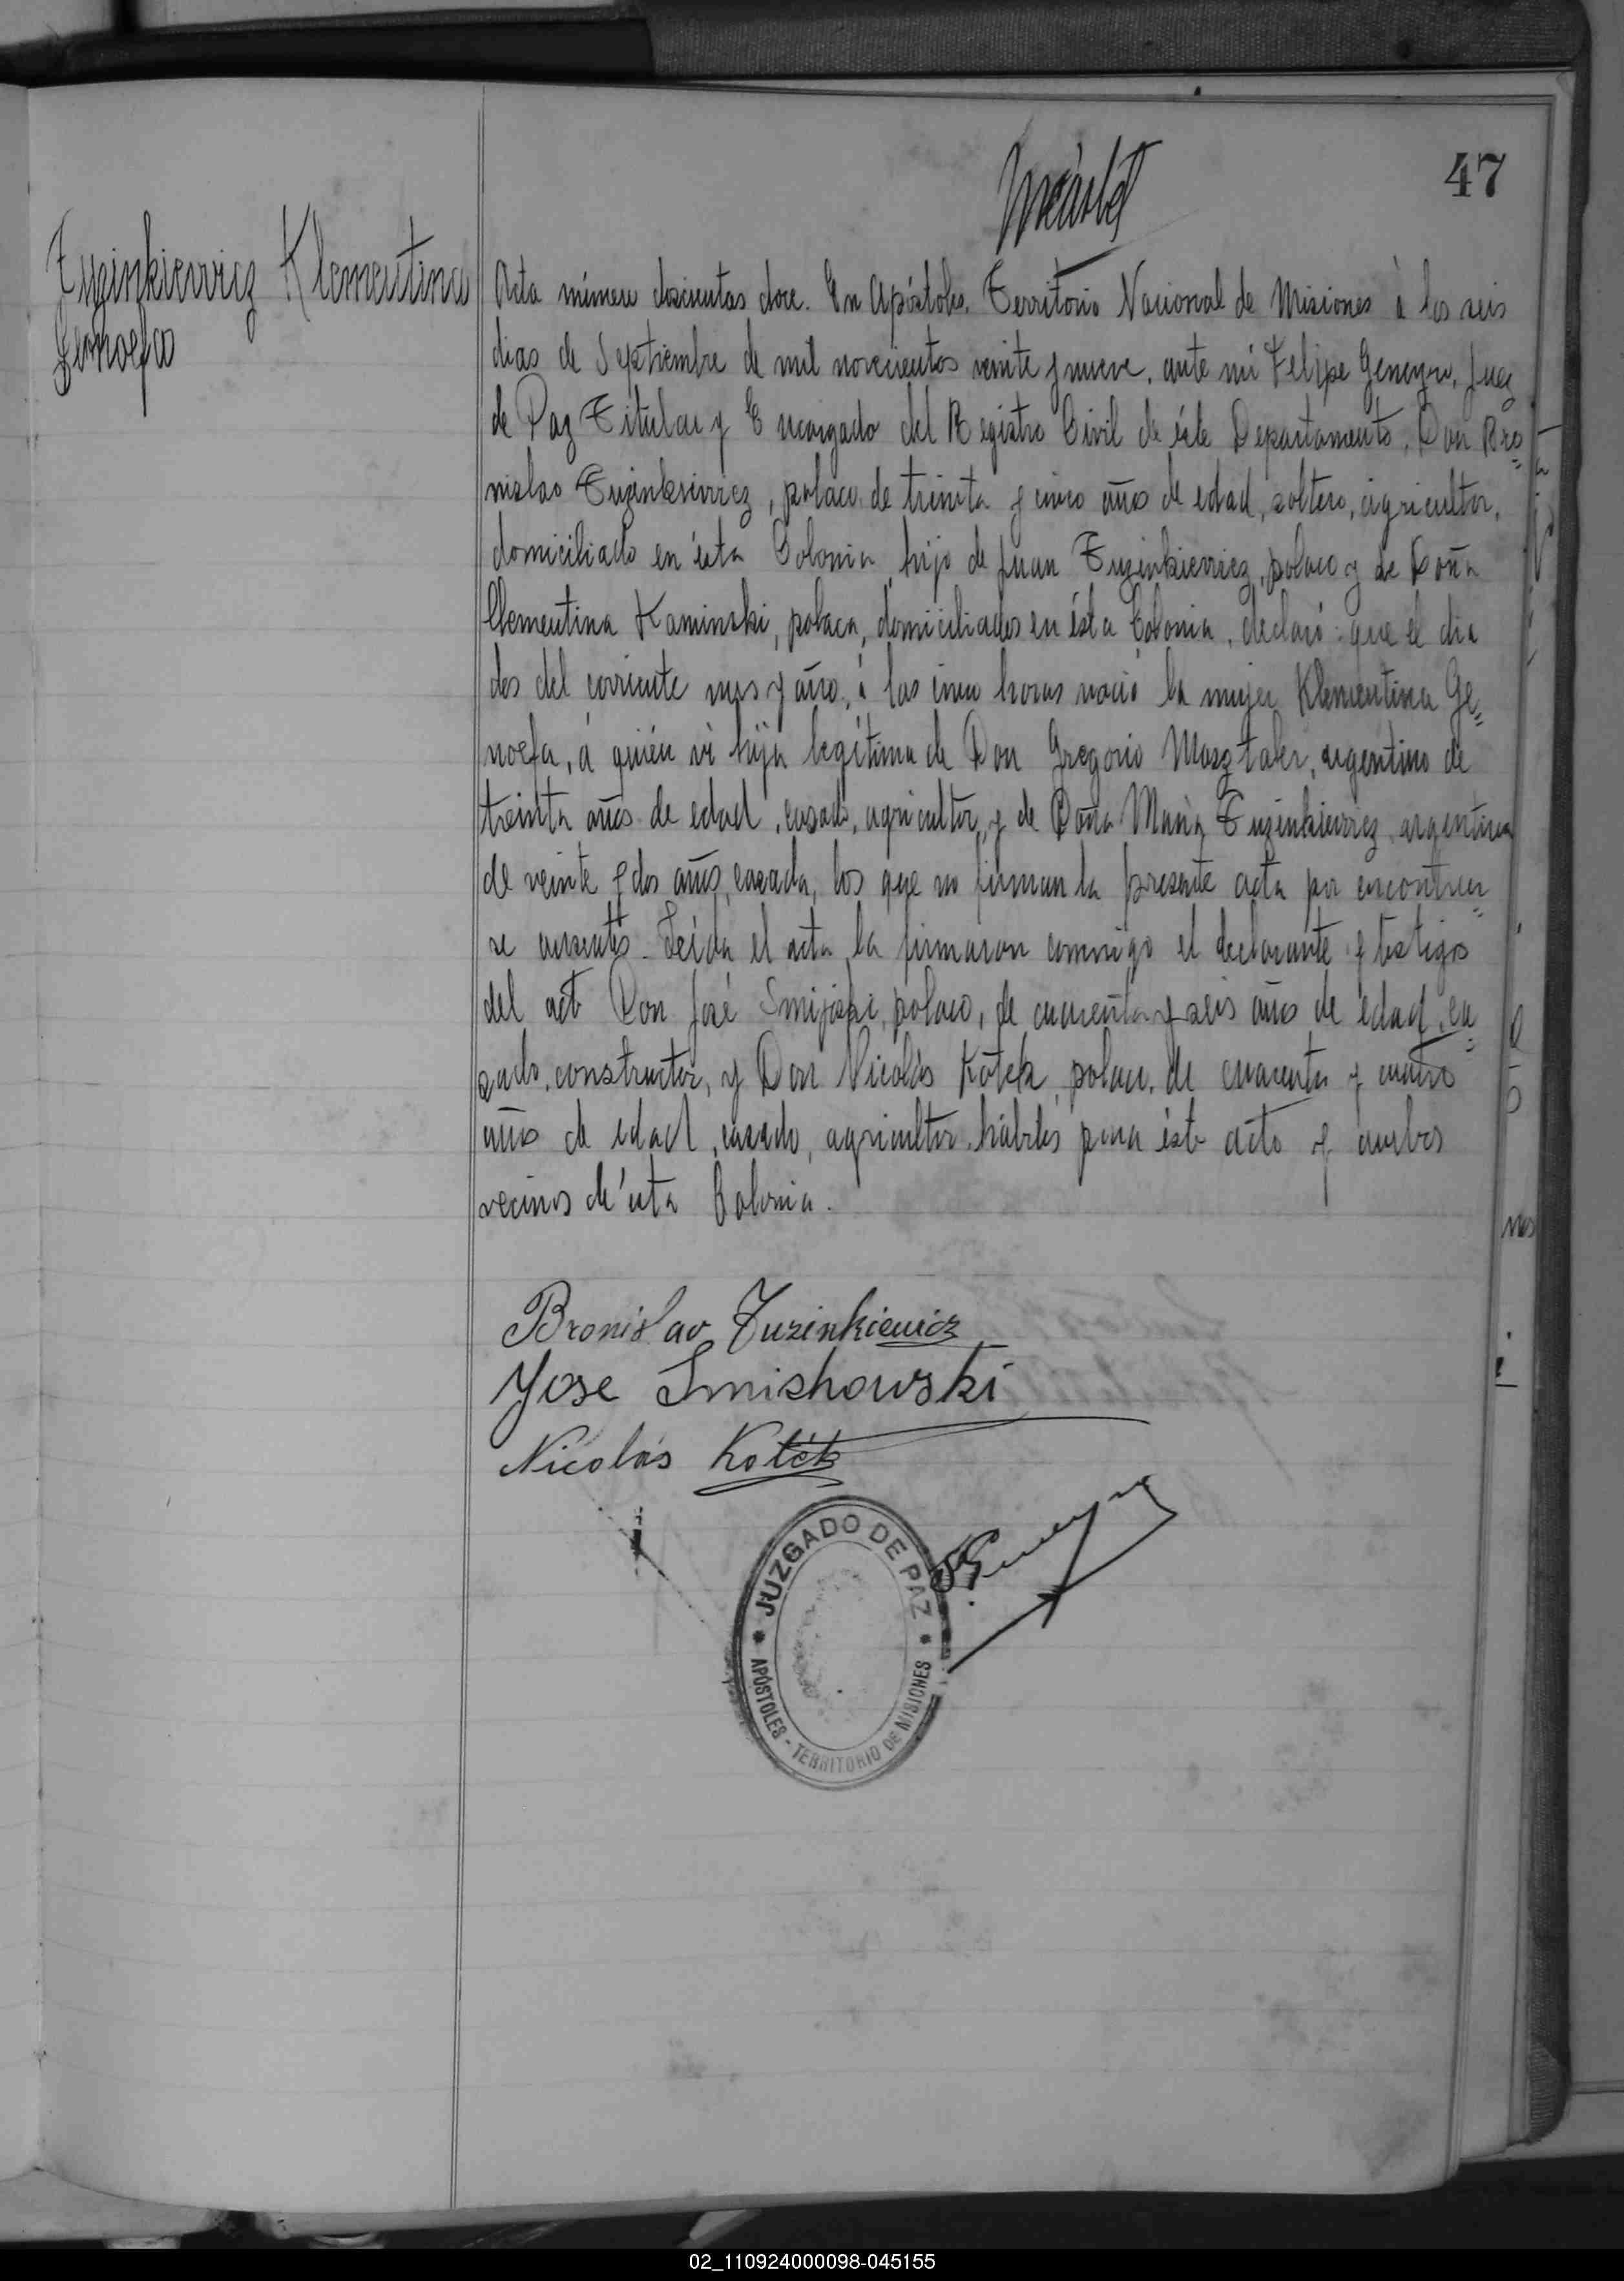 47
Tuzinkievvicz Klementina
Genoefa
Acta número doscientas doce. En Apóstoles, Territorio Nacional de Misiones à los seis
dias de Septiembre de mil novecientos veinte y nueve, ante mi Felipe Geneyro, Juez
de Paz Titular y Encargado del Registro Civil de éste Departamento, Don Bro=
nislao Tuzinkievvicz, polaco, de treinta y cinco años de edad, soltero, agricultor,
domiciliado en ésta Colonia, hijo de Juan Tuzinkievvicz, polaco y de Doña
Clementina Kaminski, polaca, domiciliados en ésta Colonia, declaró: que el dia
dos del corriente mes y año, á las cinco horas nació la mujer Klementina Ge=
noefa, á quién vi hija legítima de Don Gregorio Masztaler, argentino de
treinta años de edad, casado, agricultor, y de Doña Maria Tuzinkievvicz, argentina
de veinte y dos años, casada, los que no firman la presente acta por encontrar=
se ausentes. Leida el acta, la firmaron conmigo el declarante y testigos
del act Don José Smijoski, polaco, de cuarenta y seis años de edad, ca=
sado, constructor, y Don Nicolás Kotek, polaco, de cuarenta y cuatro
años de edad, casado, agricultor, hábiles para éste acto y ambos
vecinos de ésta Colonia.
Bronislao Tuzinkiewicz
Yose Smishowski
Nicolás Kotek
JUZGADO DE PAZ
APÓSTOLES - TERRITORIO DE MISIONES
02_110924000098-045155